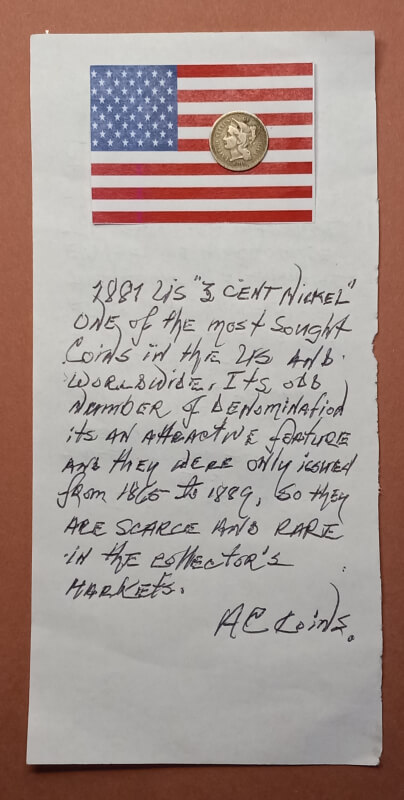 1881 US "3 CENT NICKEL"
ONE of the most sought
Coins in the US AND
WORLDWIDE, ITS ODD
NUMBER of DENOMINATION
its AN AttRActivE fEATURE
AND they WERE only issued
from 1865 to 1889, So they
ARE SCARCE AND RARE
in the collector's
MARKEts.
AC Coins.